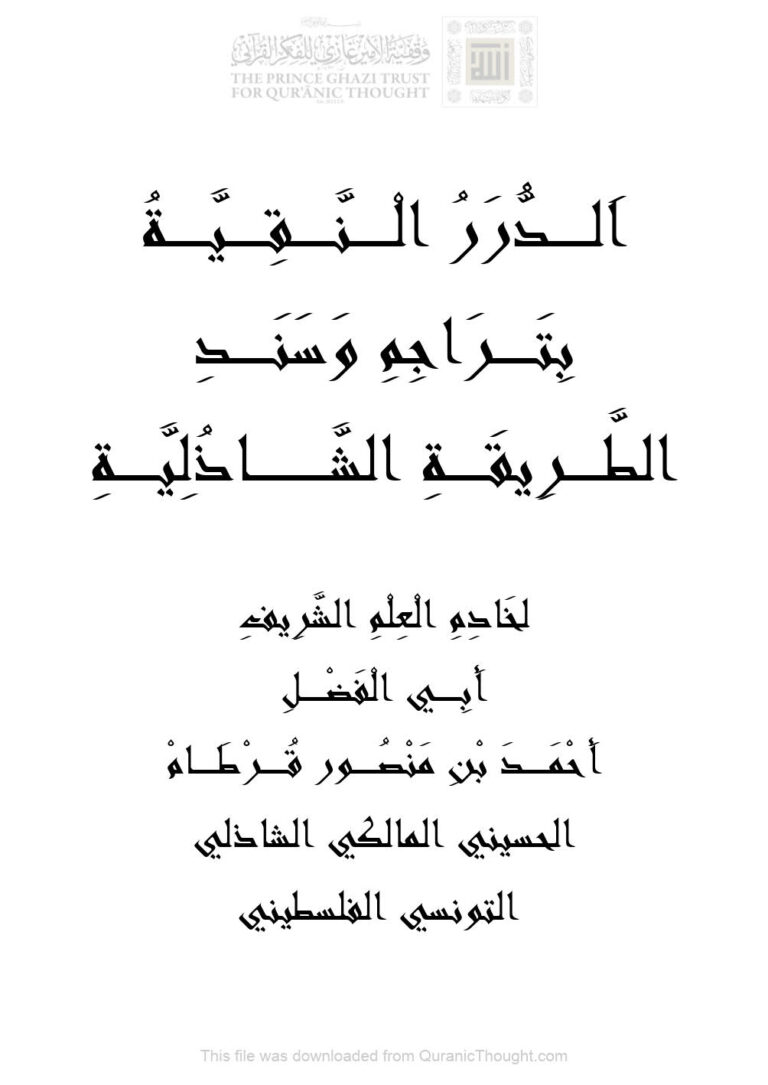 وقفية الأمير غازي للفكر القرآني
THE PRINCE GHAZI TRUST
FOR QUR'ĀNIC THOUGHT
اَلدُّرَرُ الْنَّقِيَّةُ
بِتَرَاجِمِ وَسَنَدِ
الطَّرِيقَةِ الشَّاذُلِيَّةِ
لخَادِمِ الْعِلْمِ الشَّرِيفِ
أَبِي الْفَضْلِ
أَحْمَدَ بْنِ مَنْصُور قُرْطَامْ
الحسيني المالكي الشاذلي
التونسي الفلسطيني
This file was downloaded from QuranicThought.com